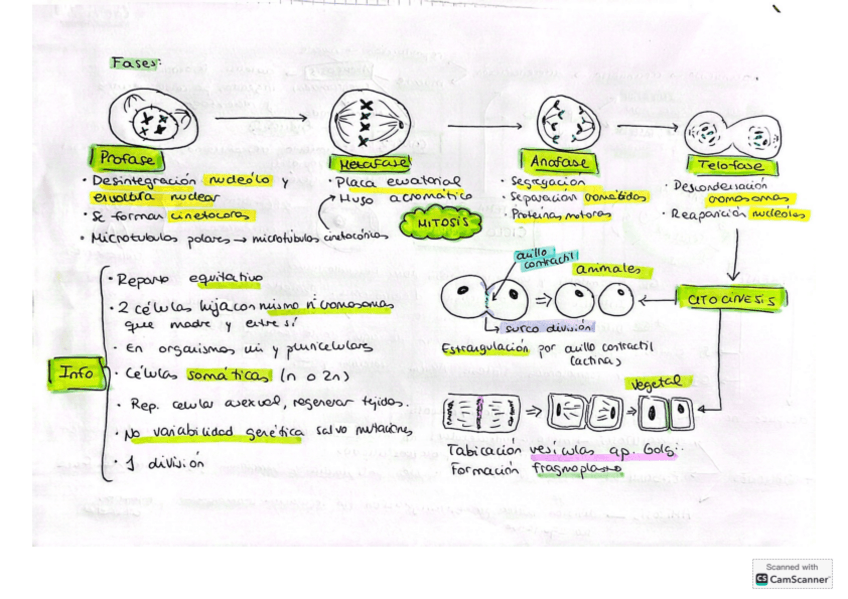 Fases:
Profase
Metafase
Anafase
Telofase
· Desintegración nucleólo y
envoltura nuclear
· Se forman cinetocoros
· Microtubulos polares → microtúbulos cinetocóricos
· Placa ecuatorial
→ Huso acromático
MITOSIS
· Segregación
· Separación cromátidas
· Proteínas motoras
· Descondensación
cromosomas
· Reaparición nucleolos
Info
· Reparto equitativo
· 2 células hijas con mismo nº cromosomas
que madre y entre sí
· En organismos uni y pluricelulares
· Células somáticas (n o 2n)
· Rep. celular asexual, regenerar tejidos.
· No variabilidad genética salvo mutaciones
· 1 división
anillo
contractil
animales
CITOCINESIS
surco división
Estrangulación por anillo contractil
(actina)
vegetal
Tabicación vesículas ap. Golgi.
Formación fragmoplasto
Scanned with
CS CamScanner